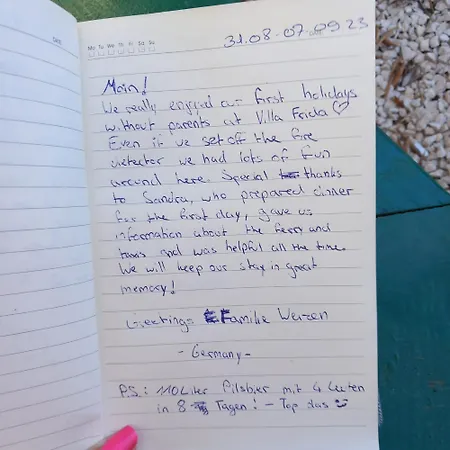 DATE
Mo Tu We Th Fr Sa Su
31.08-07.09 23
Moin!
We really enjoyed our first holidays
without parents at Villa Frida ♡
Even if we set off the fire
detector we had lots of fun
around here. Special thanks
to Sandra, who prepared dinner
for the first day, gave us
information about the ferry and
and was helpful all the time.
We will keep our stay in great
memory!
Greetings Familie Weizen
- Germany -
P.S.: 110 Liter Pilsbier mit 4 Leuten
in 8 Tagen! - Top das